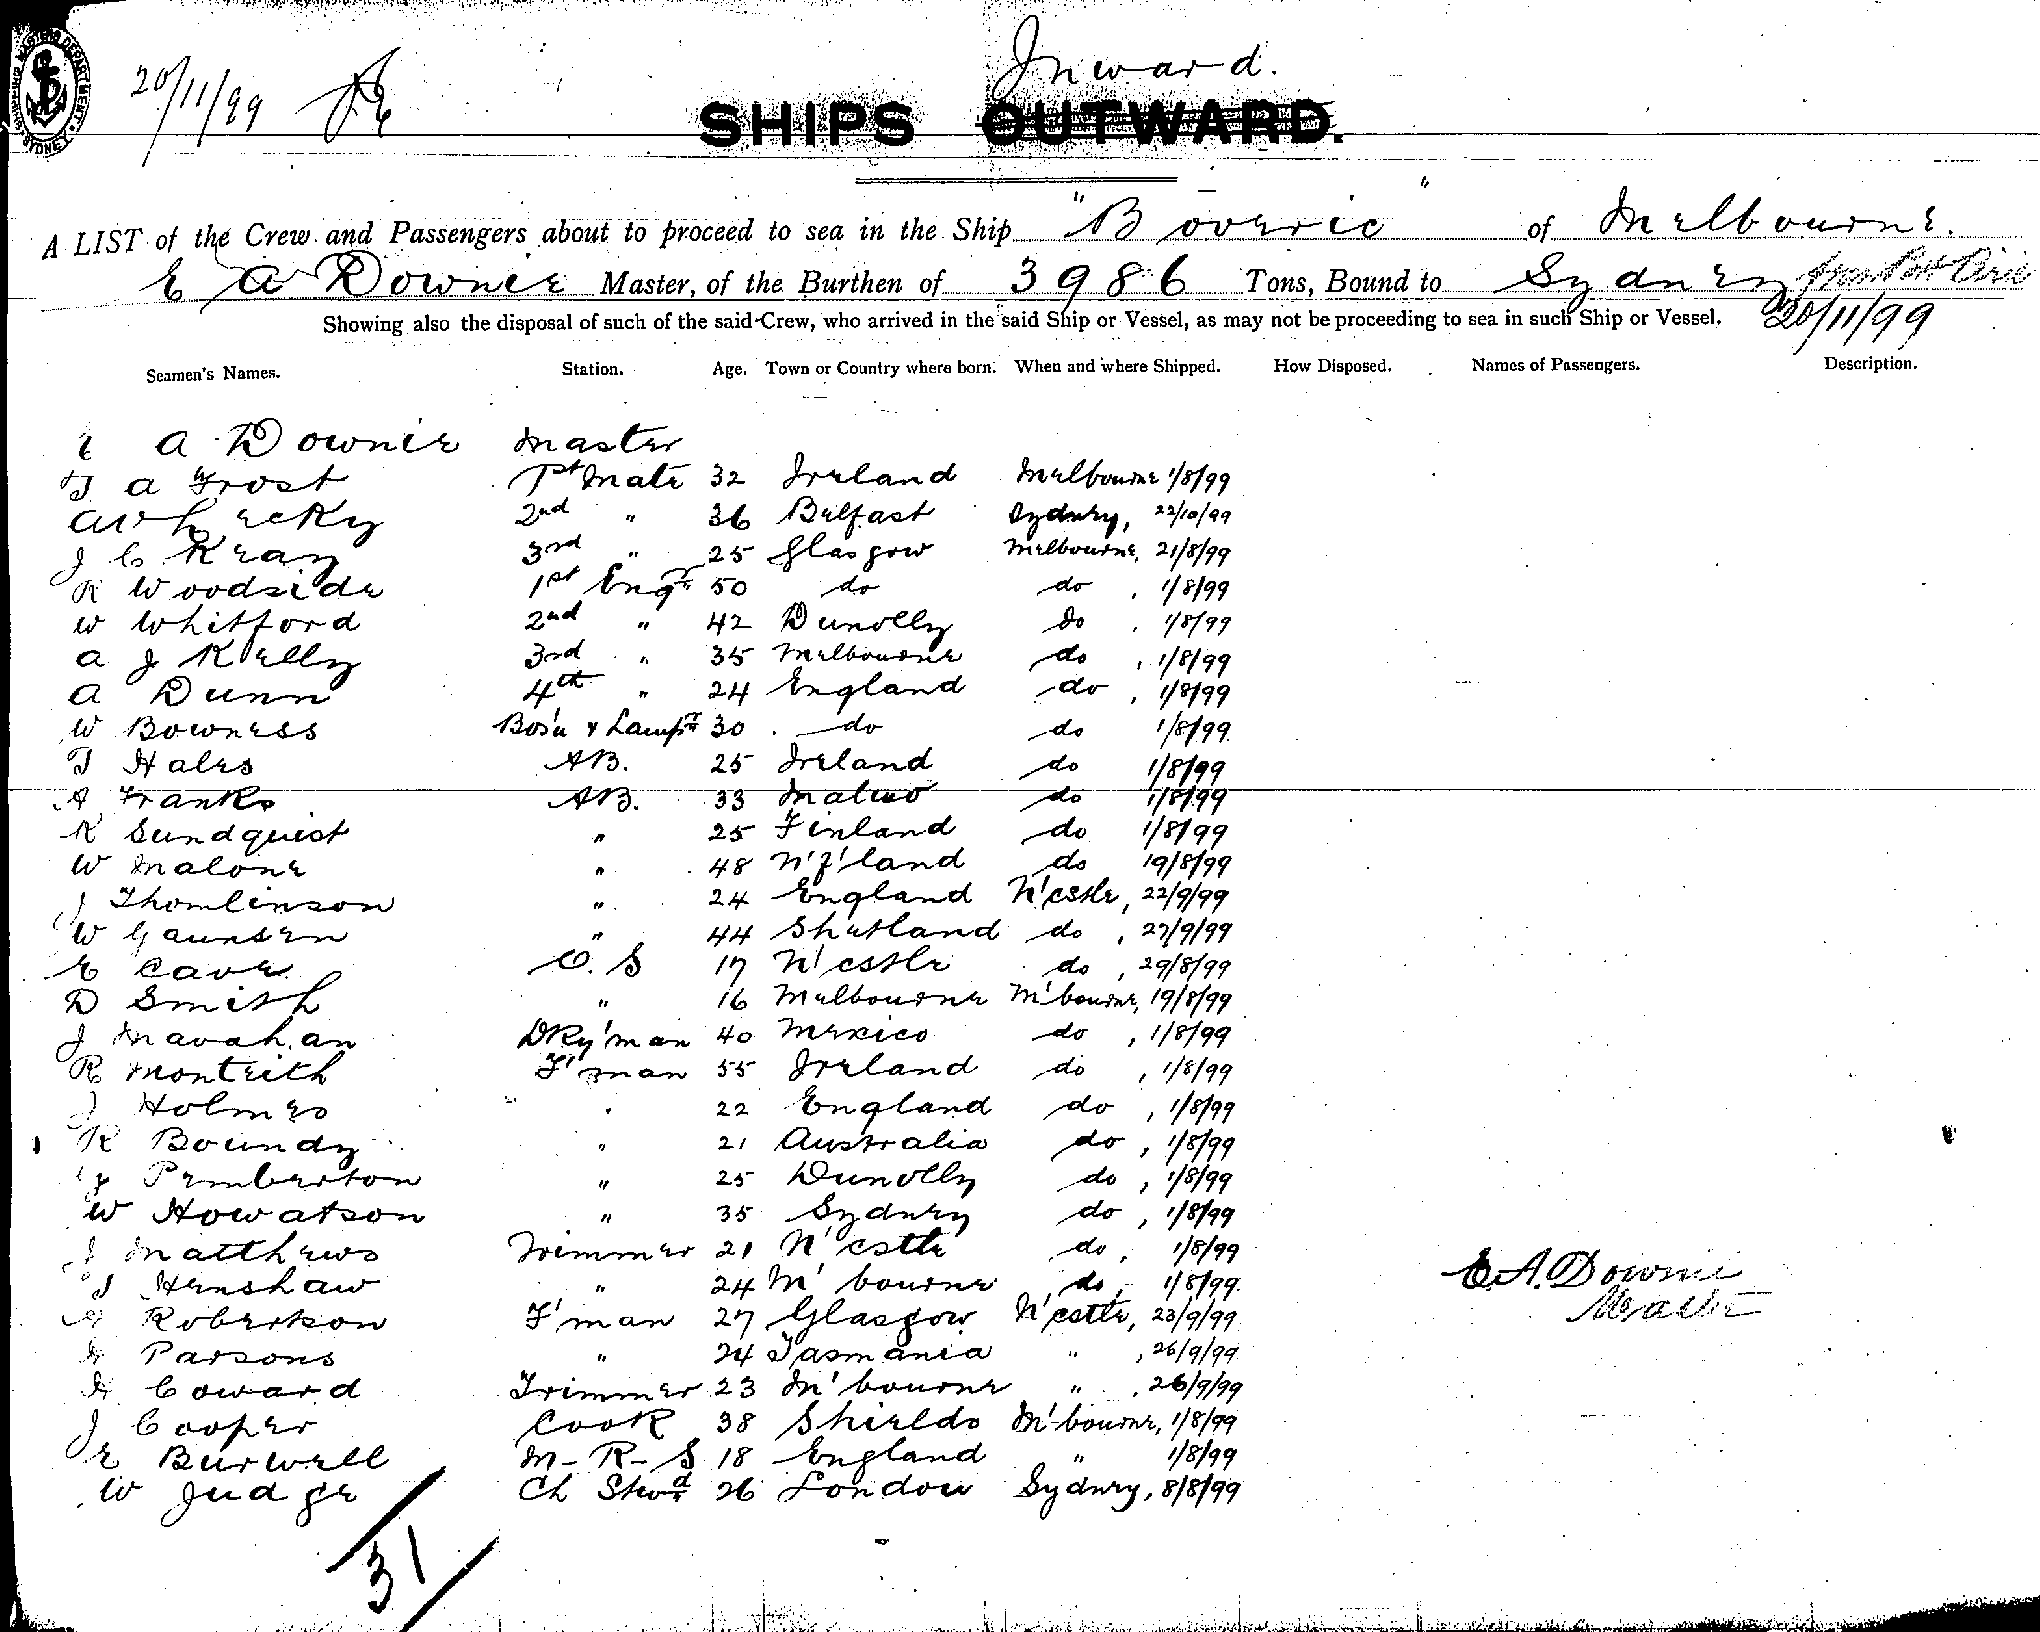 SHIPPING MASTER'S DEPARTMENT SYDNEY
20/11/99
Inward.
SHIPS OUTWARD.
A LIST of the Crew and Passengers about to proceed to sea in the Ship "Boveric" of Melbourne.
E A Downie Master, of the Burthen of 3986 Tons, Bound to Sydney from Port Pirie
Showing also the disposal of such of the said Crew, who arrived in the said Ship or Vessel, as may not be proceeding to sea in such Ship or Vessel. 20/11/99
Seamen's Names. Station. Age. Town or Country where born. When and where Shipped. How Disposed. Names of Passengers. Description.
E A Downie Master
T A Frost 1st Mate 32 Ireland Melbourne 1/8/99
A W Lecky 2nd " 36 Belfast Sydney, 22/10/99
J C Kray 3rd " 25 Glasgow Melbourne, 21/8/99
R Woodside 1st Engr 50 do do, 1/8/99
W Whitford 2nd " 42 Dunolly do, 1/8/99
A J Kelly 3rd " 35 Melbourne do, 1/8/99
A Dunn 4th " 24 England do, 1/8/99
W Bowness Bos'n & Lampr 30 do do 1/8/99
T Hales AB. 25 Ireland do 1/8/99
A Franks AB. 33 do 1/8/99
K Sundquist " 25 Finland do 1/8/99
W Malone " 48 N'F'land do 19/8/99
J Thomlinson " 24 England N'cstle, 22/9/99
W Gaunsen " 44 Shetland do, 27/9/99
E Cave O.S 17 N'cstle do, 29/8/99
D Smith " 16 Melbourne M'bourne, 19/8/99
J Mavahan DKy'man 40 Mexico do, 1/8/99
R Monteith F'man 55 Ireland do, 1/8/99
J Holmes " 22 England do, 1/8/99
R Boundy " 21 Australia do, 1/8/99
J Pemberton " 25 Dunolly do, 1/8/99
W Howatson " 35 Sydney do, 1/8/99
J Matthews Trimmer 21 N'cstle do, 1/8/99
T Henshaw " 24 M'bourne do, 1/8/99
E.A. Downie
Master
Robertson F'man 27 Glasgow N'cstle, 23/9/99
H Parsons " 24 Tasmania " , 26/9/99
H Coward Trimmer 23 M'bourne " , 26/9/99
J Cooper Cook 38 Shields M'bourne, 1/8/99
E Burwell M-R-S 18 England " 1/8/99
W Judge Ch Stwd 26 London Sydney, 8/8/99
31